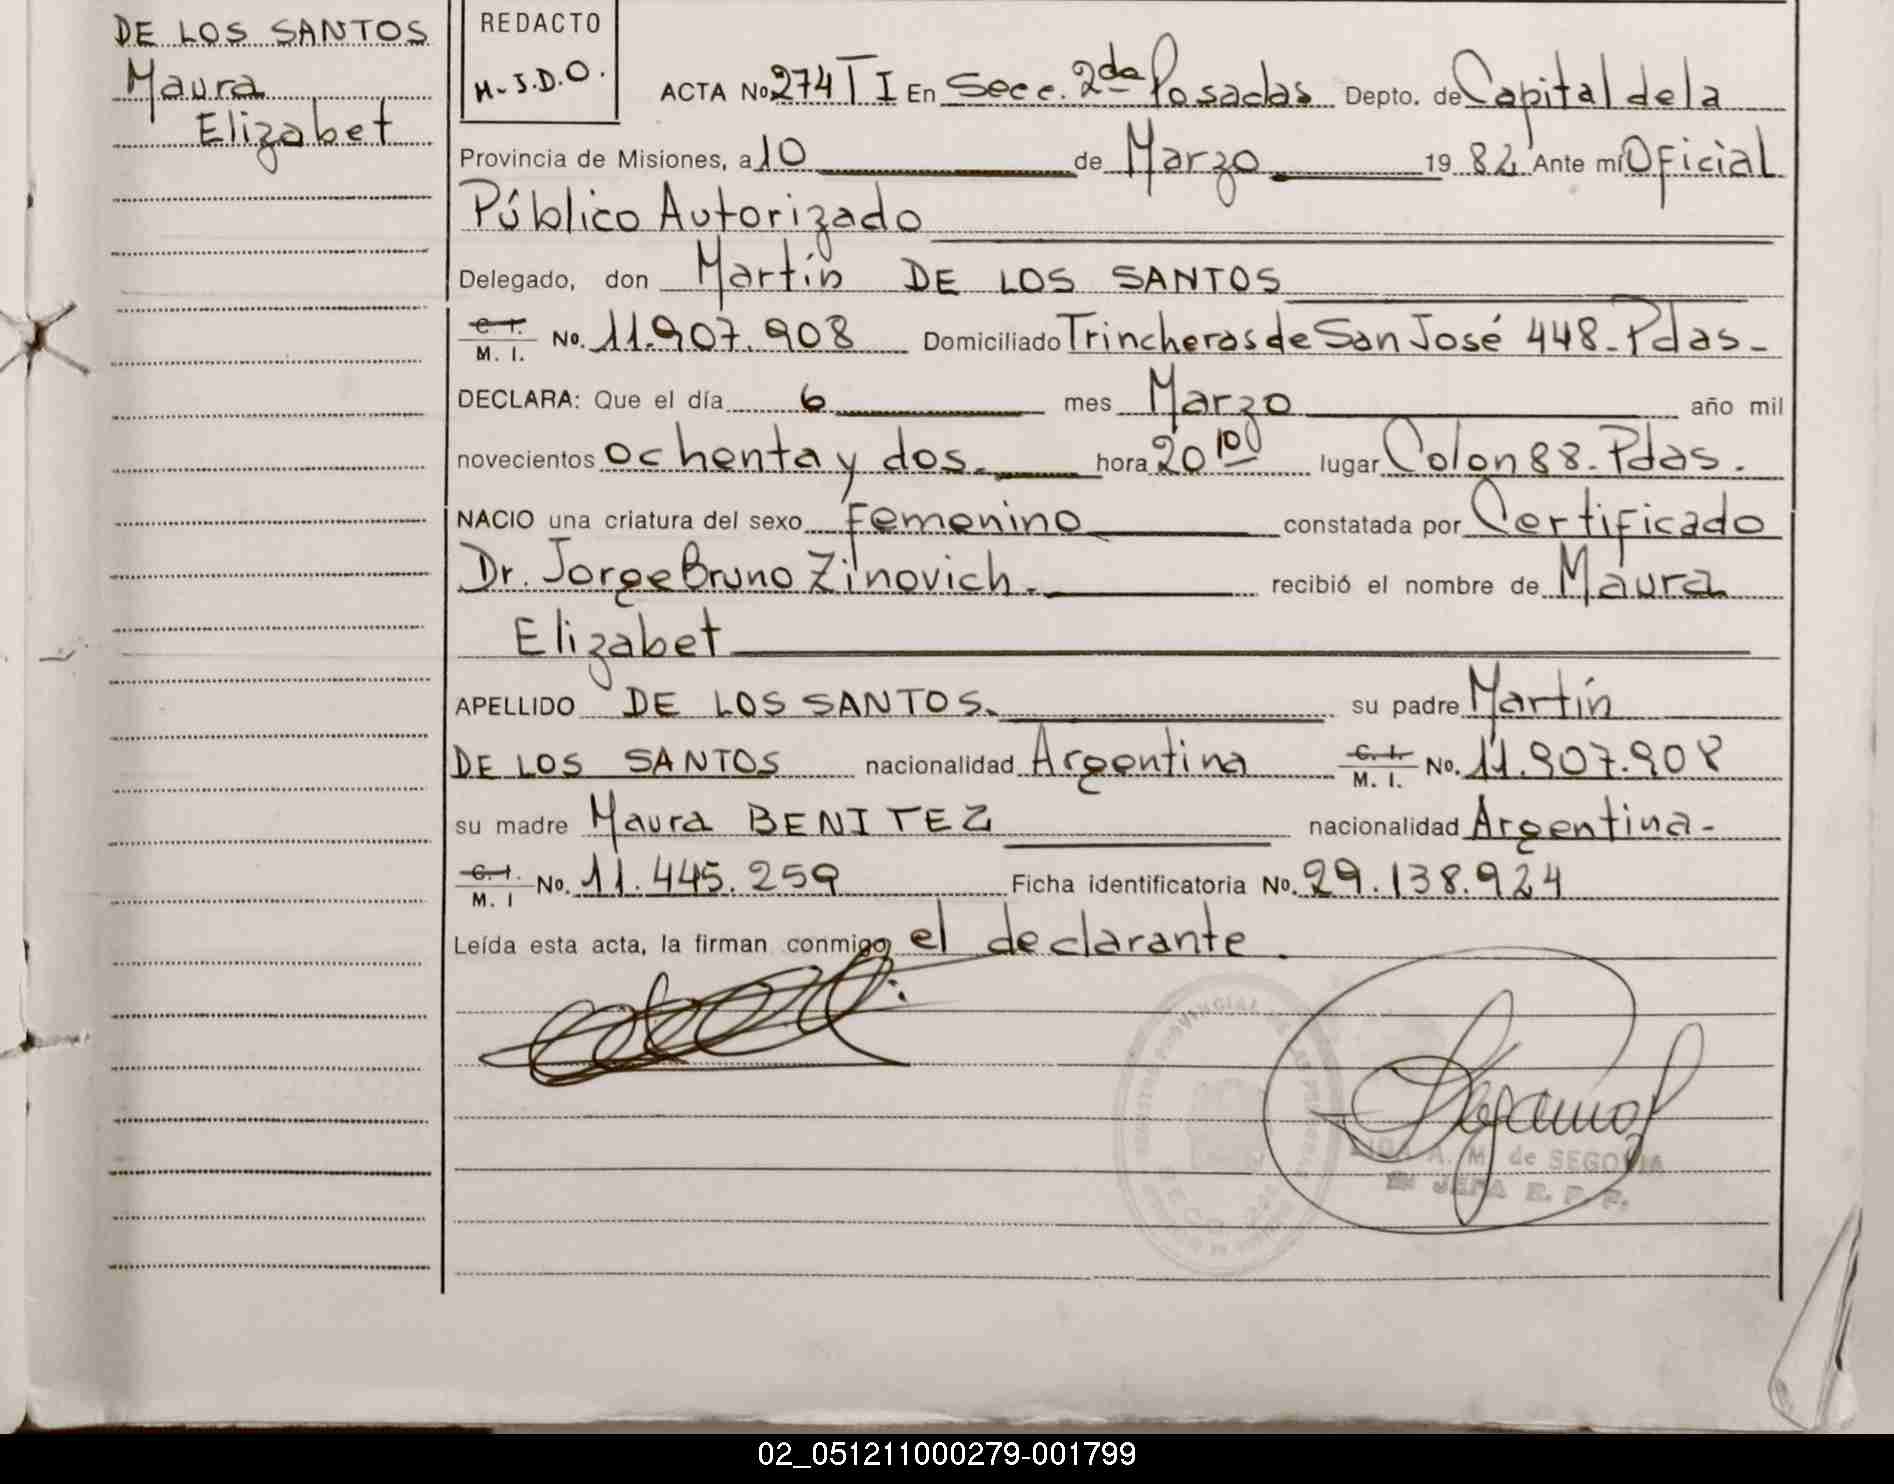 DE LOS SANTOS
Maura
Elizabet
REDACTO
M-J.D.O.
ACTA No 274 T I En Secc. 2da Posadas Depto. de Capital de la
Provincia de Misiones, a 10 de Marzo 19 82 Ante mí Oficial
Público Autorizado
Delegado, don Martín DE LOS SANTOS
C. I. M. I. No. 11.907.908 Domiciliado Trincheras de San José 448-Pdas-
DECLARA: Que el día 6 mes Marzo año mil
novecientos ochenta y dos. hora 20 10 lugar Colon 88-Pdas.
NACIO una criatura del sexo Femenino constatada por Certificado
Dr. Jorge Bruno Zinovich. recibió el nombre de Maura
Elizabet
APELLIDO DE LOS SANTOS. su padre Martín
DE LOS SANTOS nacionalidad Argentina C. I. M. I. No. 11.907.908
su madre Maura BENITEZ nacionalidad Argentina-
C. I. M. I No. 11.445.259 Ficha identificatoria No. 29.138.924
Leída esta acta, la firman conmigo, el declarante.
A. M. de SEGOVIA
JEFA R. P. P.
02_051211000279-001799